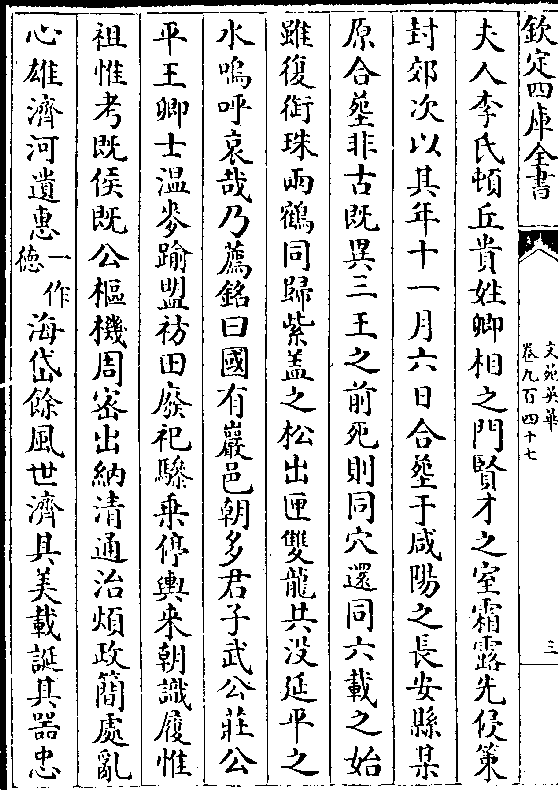 欽定四庫全書
文苑英華
卷九百四十七
三
夫人李氏頓丘貴姓卿相之門賢才之室霜露先侵策
封郊次以其年十一月六日合塟于咸陽之長安縣某
原合塟非古既異三王之前死則同穴還同六載之始
雖復銜珠兩鶴同歸紫盖之松出匣雙龍共没延平之
水嗚呼哀哉乃薦銘曰國有巖邑朝多君子武公莊公
平王卿士溫麥踰盟祊田廢祀驂乗停輿来朝識履惟
祖惟考既侯既公樞機周宻出納清通治煩政簡處亂
心雄濟河遺惠一作德海岱餘風世濟具美載誕其器忠